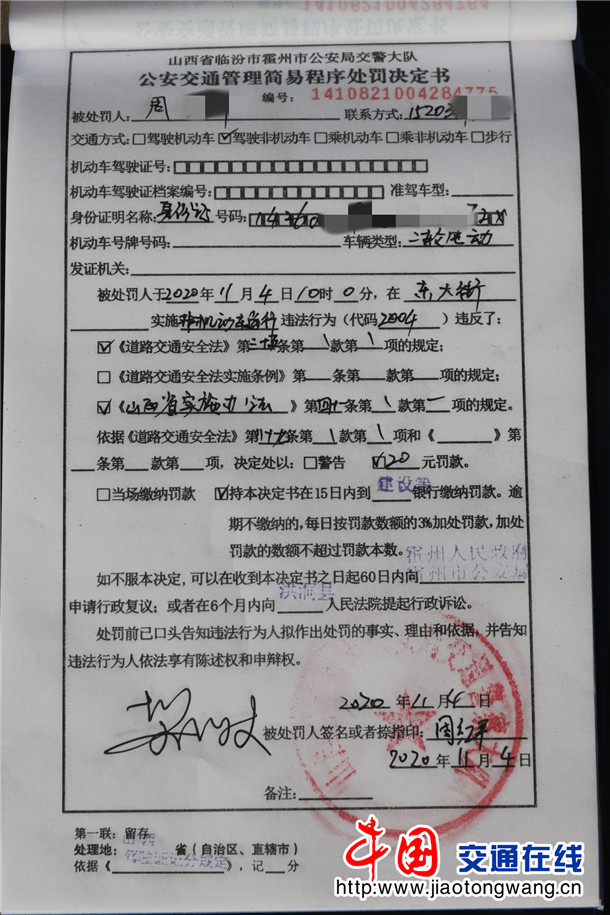 山西省临汾市霍州市公安局交警大队
公安交通管理简易程序处罚决定书
编号：1410821004284775
被处罚人：周 联系方式：15203
交通方式：□驾驶机动车 ☑驾驶非机动车 □乘机动车 □乘非机动车 □步行
机动车驾驶证号：
机动车驾驶证档案编号： 准驾车型：
身份证明名称：身份证 号码：
机动车号牌号码： 车辆类型：二轮电动
发证机关：
被处罚人于2020年11月4日10时0分，在东大街
实施非机动车逆行违法行为（代码2004）违反了：
☑《道路交通安全法》第三十五条第1款第1项的规定；
□《道路交通安全法实施条例》第 条第 款第 项的规定；
☑《山西省实施办法》第四十一条第1款第一项的规定。
依据《道路交通安全法》第八十九条第1款第1项和《 》第
条第 款第 项，决定处以：□警告 ☑20元罚款。
□当场缴纳罚款 ☑持本决定书在15日内到建设等银行缴纳罚款。逾
期不缴纳的，每日按罚款数额的3%加处罚款，加处
罚款的数额不超过罚款本数。
霍州人民政府
如不服本决定，可以在收到本决定书之日起60日内向霍州市公安局
申请行政复议；或者在6个月内向洪洞县人民法院提起行政诉讼。
处罚前已口头告知违法行为人拟作出处罚的事实、理由和依据，并告知
违法行为人依法享有陈述权和申辩权。
2020年11月4日
被处罚人签名或者捺指印：周红平
2020年11月4日
备注：
第一联：留存
处理地：山西省（自治区、直辖市）
依据《驾驶证记分规定》，记 分
中国交通在线
http:www.jiaotongwang.cn